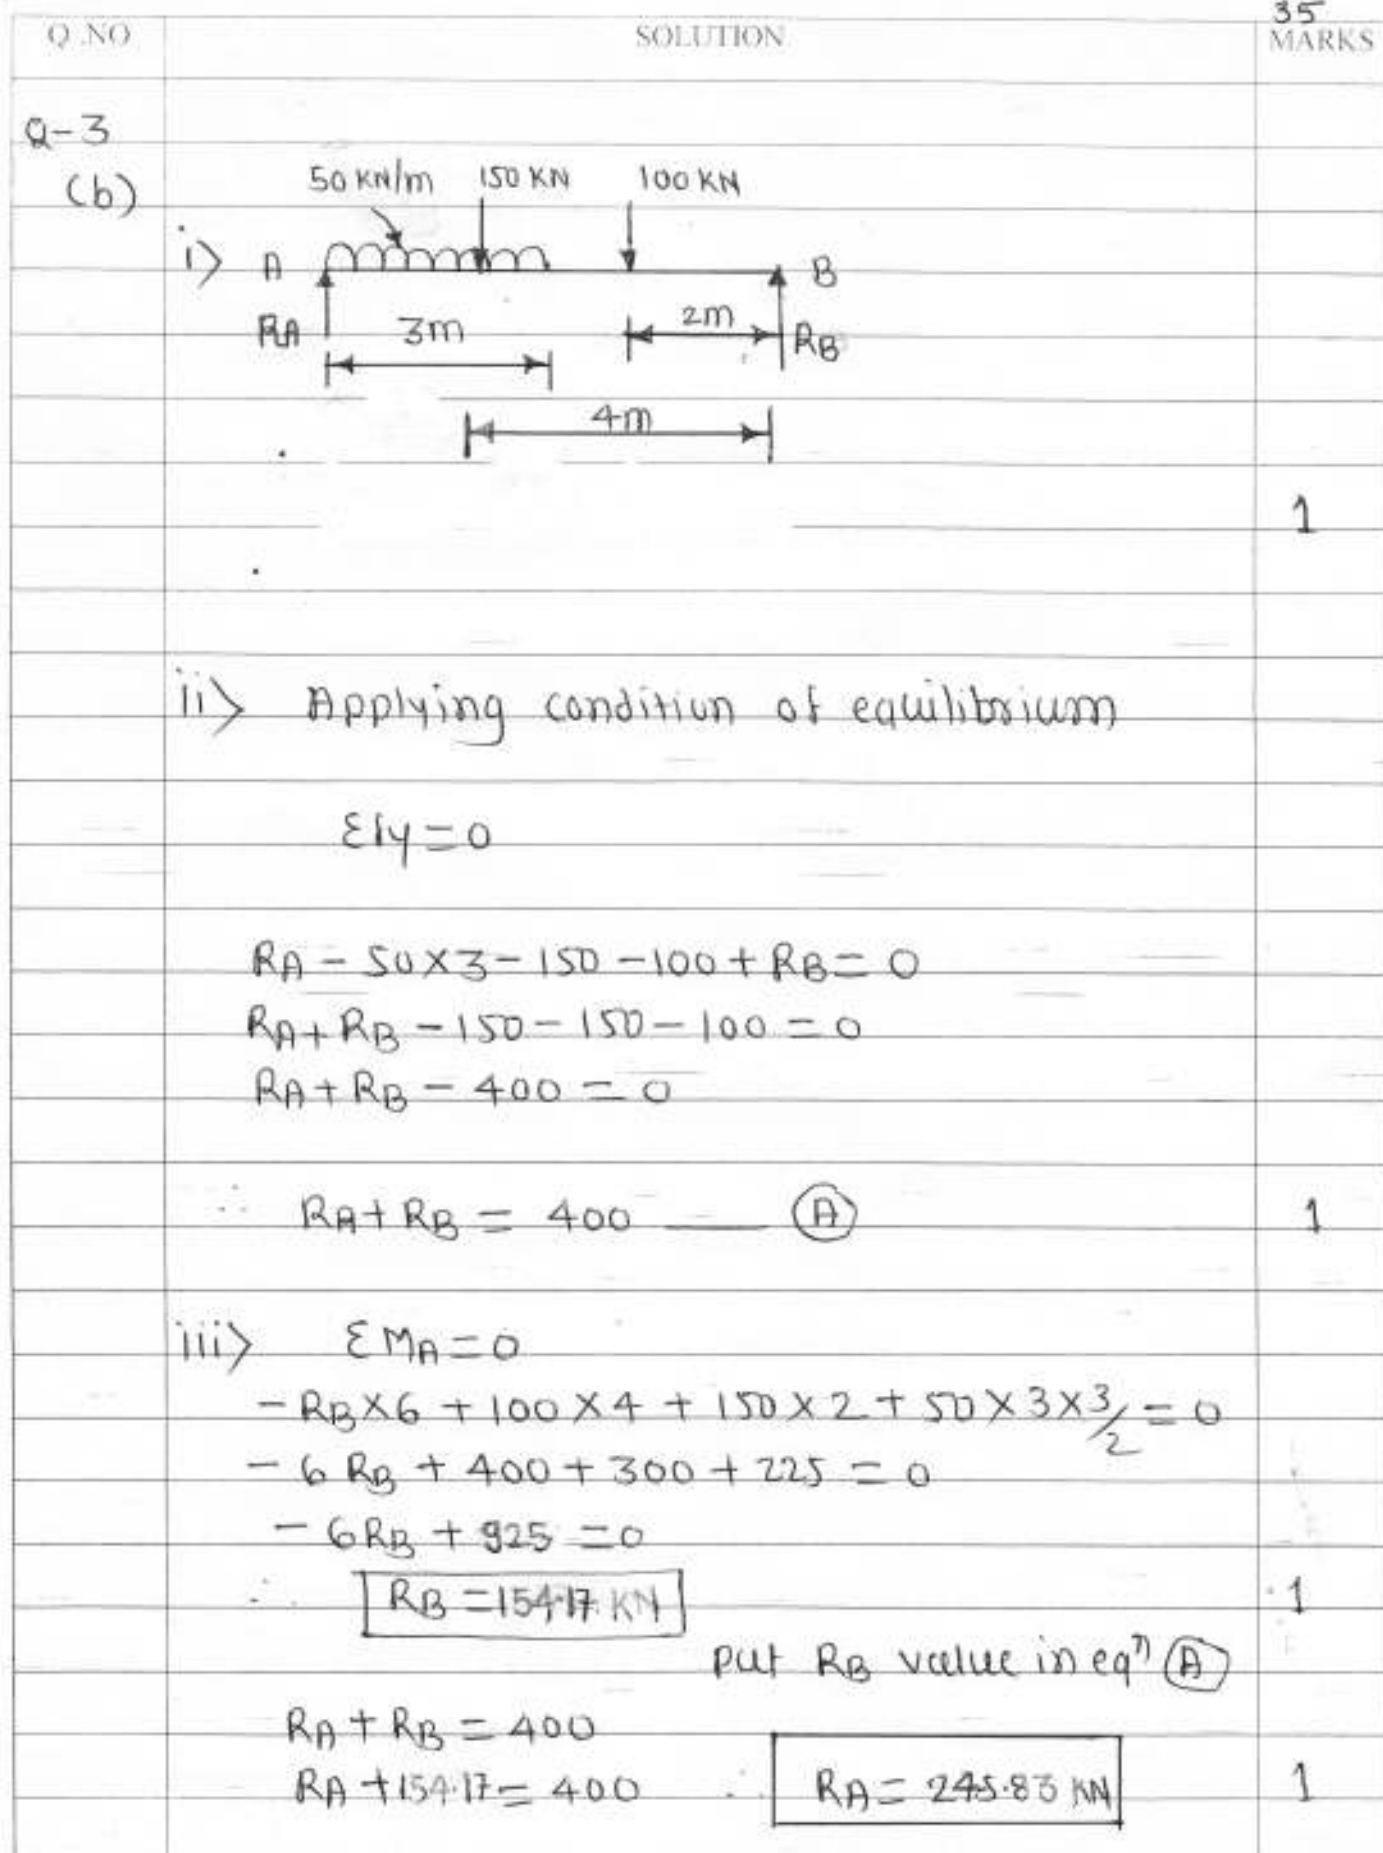 35
Q .NO SOLUTION MARKS
Q-3
(b)
50 KN/m 150 KN 100 KN
i> A B
RA 3m 2m RB
4m
1
ii> Applying conditiun of equilibrium
Σfy=0
RA - 50×3-150-100+RB=0
RA+RB-150-150-100=0
RA+RB-400=0
∴ RA+RB = 400 —— (A) 1
iii> ΣMA=0
-RB×6+100×4+150×2+50×3×3/2=0
-6RB+400+300+225=0
-6RB+925=0
∴ RB=154.17 KN 1
put RB value in eqⁿ (A)
RA+RB=400
RA+154.17=400 ∴ RA=245.83 KN 1